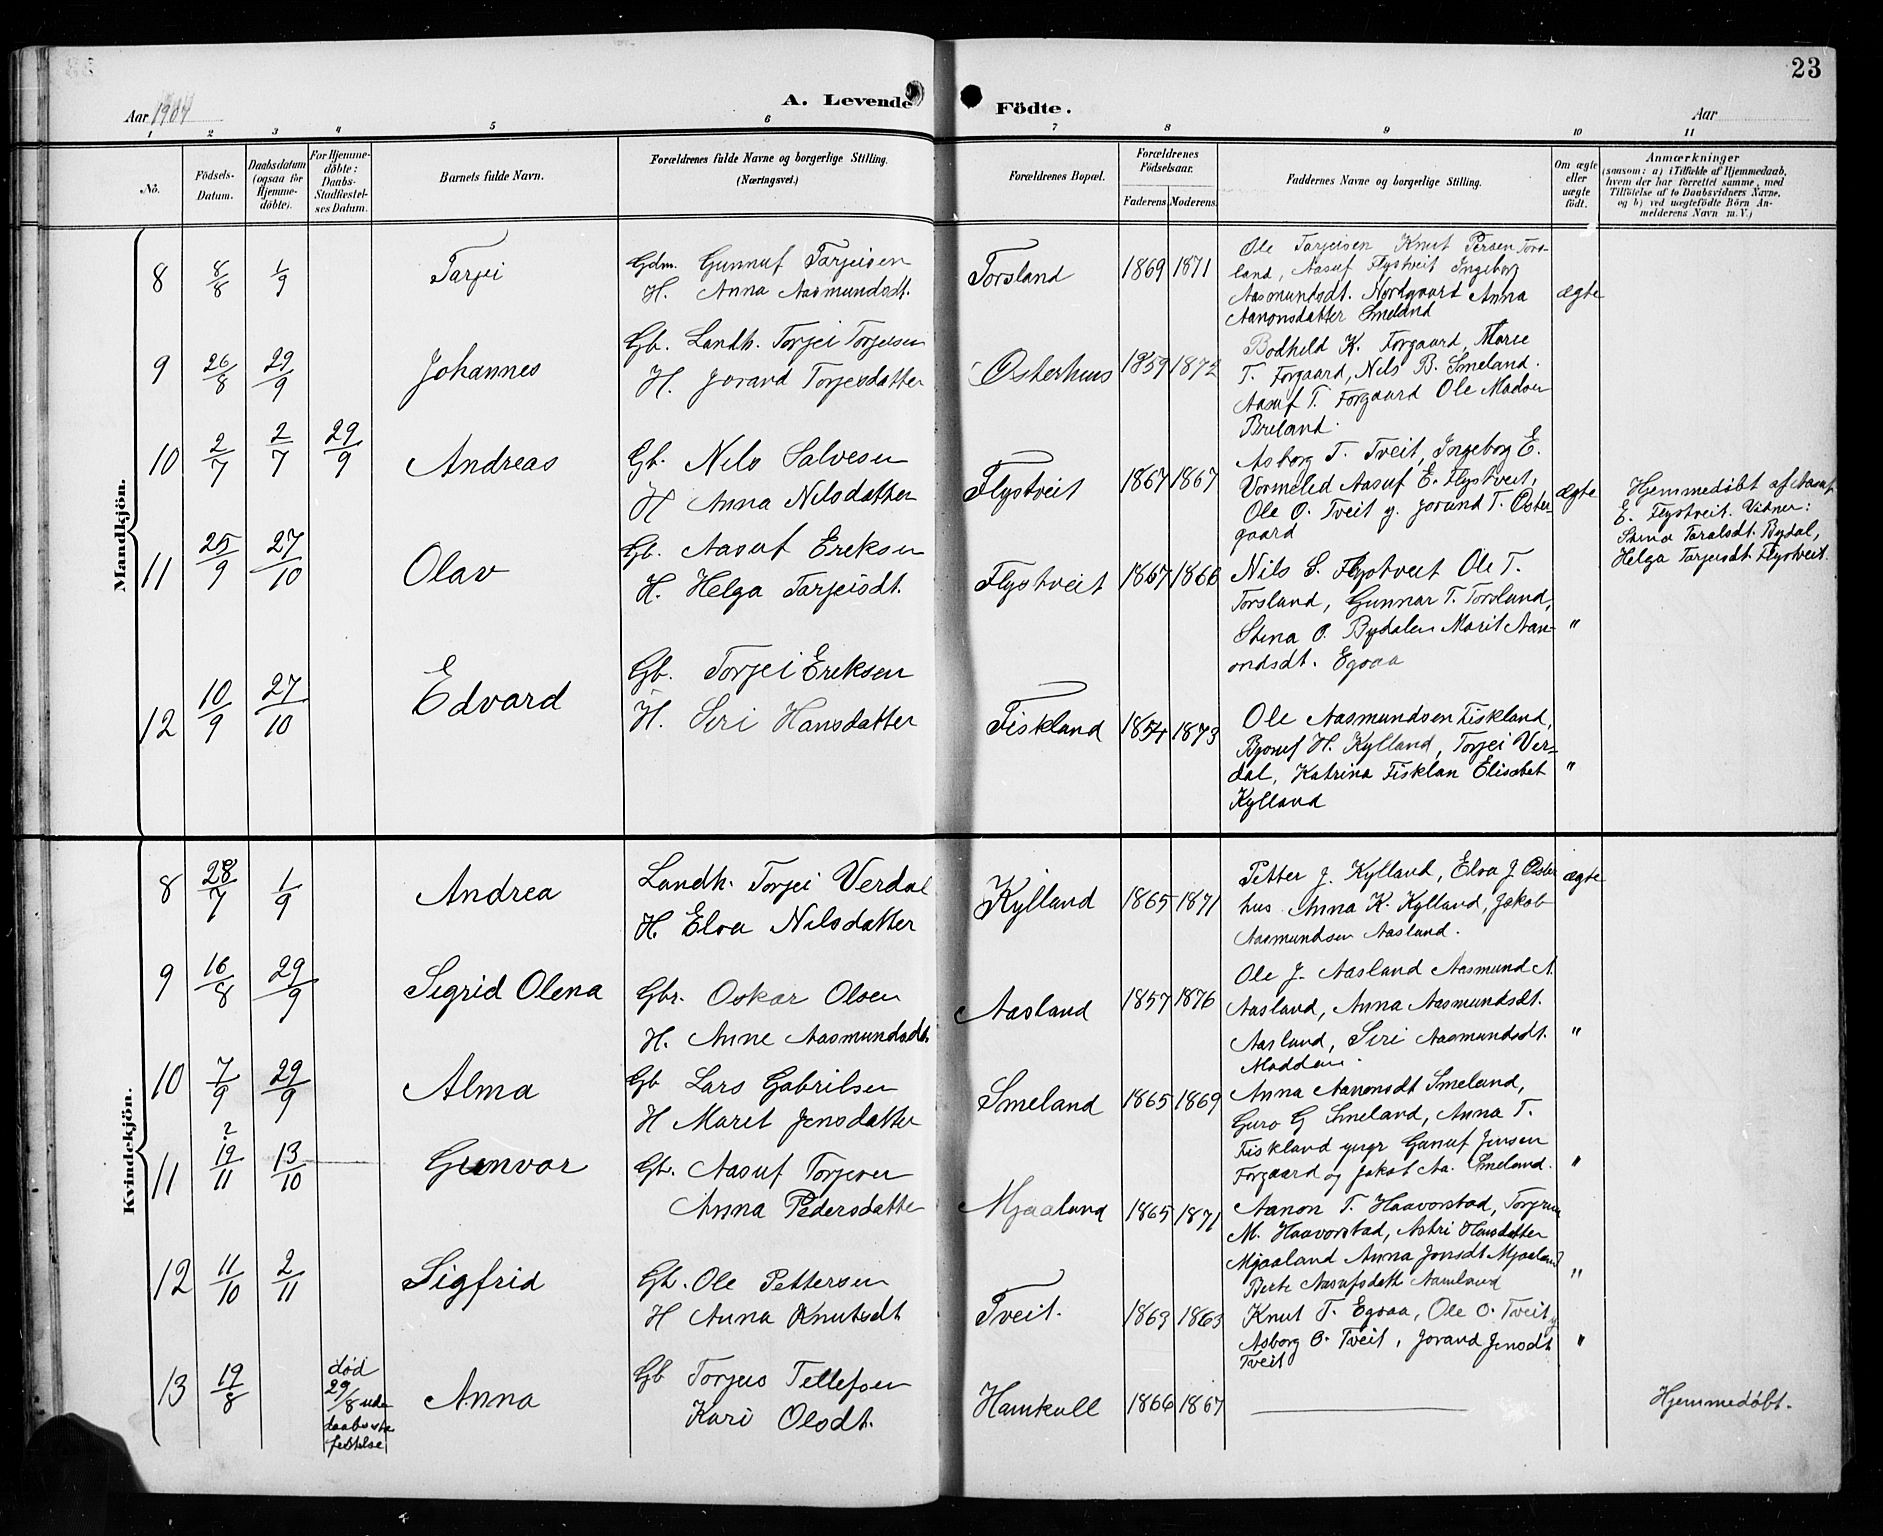 23
Aar 1907
A. Levende Födte.
Aar
1 2 3 4 5 6 7 8 9 10 11
No.
Födsels-Datum.
Daabsdatum (ogsaa for Hjemme-döbte).
For Hjemme-döbte: Daabs-Stadfæstel-ses Datum.
Barnets fulde Navn.
Forældrenes fulde Navne og borgerlige Stilling. (Næringsvei.)
Forældrenes Bopæl.
Forældrenes Födselsaar.
Faderens Moderens
Faddernes Navne og borgerlige Stilling.
Om ægte eller uægte födt.
Anmærkninger
(saasom: a) i Tilfælde af Hjemmedaab, hvem der har forrettet samme, med Tilföielse af to Daabsvidners Navne, og b) ved uægtefödte Börn An-melderens Navn m. V.)
Mandkjön.
8 8/8 1/9 Tarjei
Gdm. Gunnuf Tarjeisen
H. Anna Aasmundsdt.
Torsland 1869 1871
Ole Tarjeisen Knut Persen Tors-
land, Aasuf Flystveit Ingeborg
Aasmundsdt. Nordgaard Anna
Aanonsdatter Smelnd
ægte
9 26/8 29/9 Johannes
Gb. Landh. Torjei Torjeisen
H. Jorand Torjersdatter
Osterhuus 1859 1872
Bodheld K. Forgaard, Marie
T. Forgaard, Nils B. Smeland.
Aasuf T. Forgaard Ole Madsen
Breland.
10 2/7 2/7 29/9 Andreas
Gb. Nils Salvesen
H Anna Nilsdatter
Flystveit 1867 1867
Asborg T. Tveit, Ingeborg E.
Vormelid Aasuf E. Flystveit,
Ole O. Tveit g. Jorund T. Oster-
gaard
ægte
Hjemmedøbt af Aasuf
E. Flystveit. Vidner:
Stina Taralsdt. Bydal,
Helga Tarjeisdt. Flystveit.
11 25/9 27/10 Olav
Gb. Aasuf Eriksen
H. Helga Tarjeisdt.
Flystveit 1867 1866
Nils S. Flystveit Ole T.
Torsland, Gunnar T. Torsland,
Stena O. Bydalen Marit Aan-
ondsdt. Egsaa
"
12 10/9 27/10 Edvard
Gb. Torjei Eriksen
H. Siri Hansdatter
Fiskland 1854 1873
Ole Aasmundsen Fiskland,
H. Kylland, Torjei Ver-
dal, Katrina Fisklan Elisabet
Kylland
"
Kvindekjön.
8 28/7 1/9 Andrea
Landh. Torjei Verdal
H. Elva Nilsdatter
Kylland 1865 1871
Petter J. Kylland, Elva J. Oster
hus Anna K. Kylland, Jakob
Aasmundsen Aasland.
ægte
9 16/8 29/9 Sigrid Olena
Gbr. Oskar Olsen
H. Anne Aasmundsdt.
Aasland 1857 1876
Ole J. Aasland Aasmund A.
Aasland, Anna Aasmundsdt.
Aasland, Siri Aasmundsdt.
"
10 7/9 29/9 Alma
Gb Lars Gabrilsen
H Marit Jensdatter
Smeland 1865 1869
Anna Aanonsdt Smeland,
Guro G Smeland, Anna T.
Fiskland yngr Gunuf Jensen
Forgaard og Jakob Aa. Smeland.
"
11 ? 19/11 13/10 Gunvor
Gb. Aasuf Torjersen
Anna Pedersdatter
Mjaaland 1865 1871
Aanon T. Haavorstad, Torjrun
M. Haavorstad, Astri Hansdatter
Mjaaland Anna Jonsdt Mjaaland
Berte Aasufsdatt Aamland
"
12 11/10 2/11 Sigfrid
Gb. Ole Pettersen
H Anna Knutsdt
Tveit. 1863 1863
Knut T. Egsaa, Ole O. Tveit g
Asborg O. Tveit, Jorand Jensdt
Tveit
"
13 19/8 død 29/8 uden daabssta festelse
Anna
Gb Torjus Tellefsen
Kari Olsdt.
Hamkoll 1866 1867
Hjemmedøbt.